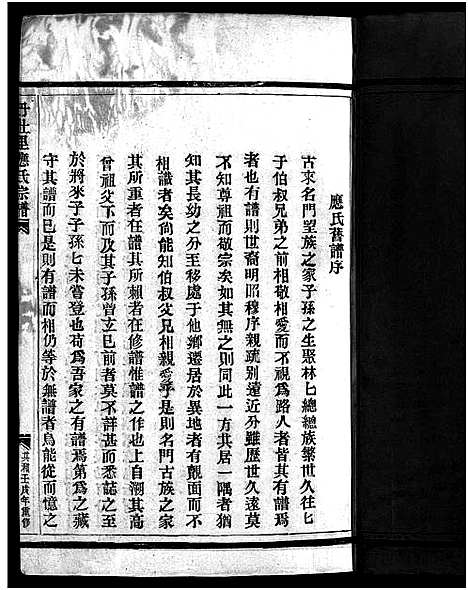 應氏舊譜序
古來名門望族之家子孫之生聚林匕總總族繁世久往匕
于伯叔兄弟之前相敬相愛而不視為路人者皆其有譜焉
者也有譜則世裔明昭穆序親疏別遠近分雖歷世久遠莫
不知尊祖而敬宗矣如其無之則同此一方其居一隅者猶
知其長幼之分至移處于他鄉遷居於異地者有覿面而不
相識者矣尚能知伯叔父兄相親愛乎是則名門古族之家
其所重者在譜其所賴者在修譜惟譜之作也上自溯其高
曾祖父下而及其子孫曾玄已前者莫不詳甚而悉誌之至
於將來子子孫匕未嘗登也苟為吾家之有譜焉第為之藏
守其譜而已是則有譜而相仍等於無譜者烏能從而憶之
應氏宗譜
共和壬戌年重修